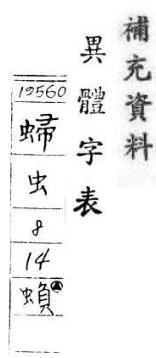 補充資料
異體字表
12560
蜹
虫
8
14
蝜